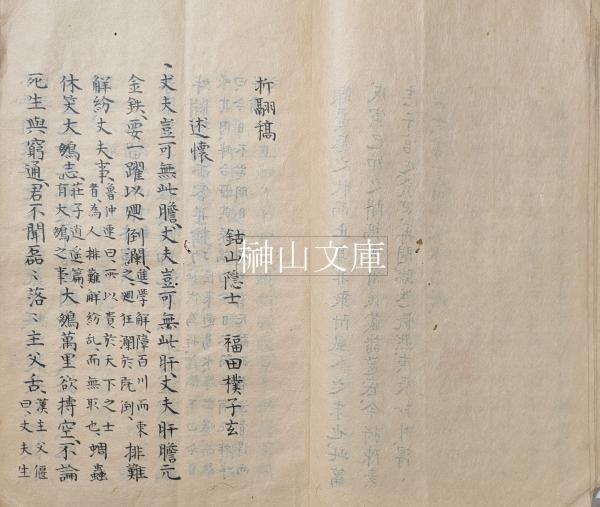 折翮稿
鈷山隠士 福田樸子玄
述懐
丈夫豈可無此膽、丈夫豈可無此肝、丈夫肝膽元
金鉄、要一躍以廻倒瀾、進學解、障百川而東之、廻狂瀾於既倒、排難
解紛丈夫事、魯仲連曰所以貴於天下之士者、為人排難解紛乱、而無取也、蜩蟲
休笑大鵬志、荘子逍遥篇有大鵬之事大鵬萬里欲摶空、不論
死生與窮通、君不聞磊々落々主父舌、漢主父偃曰、丈夫生
榊山文庫